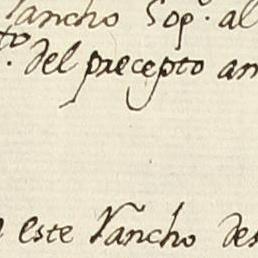 Rancho Sopº. al
to. del precepto an
este Rancho des